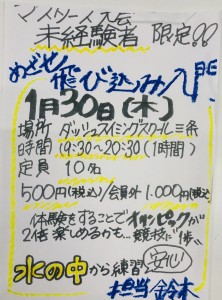 マスターズ大会
未経験者 限定!!
めざせ!飛び込み入門
1月30日(木)
場所 ダッシュスイミングスクール三条
時間 19:30~20:30(1時間)
定員 10名
500円(税込)/会員外 1,000円(税込)
1体験をすることでオリンピックが
2倍楽しめるかも…競技に1歩
水の中から練習 安心!
担当 鈴木